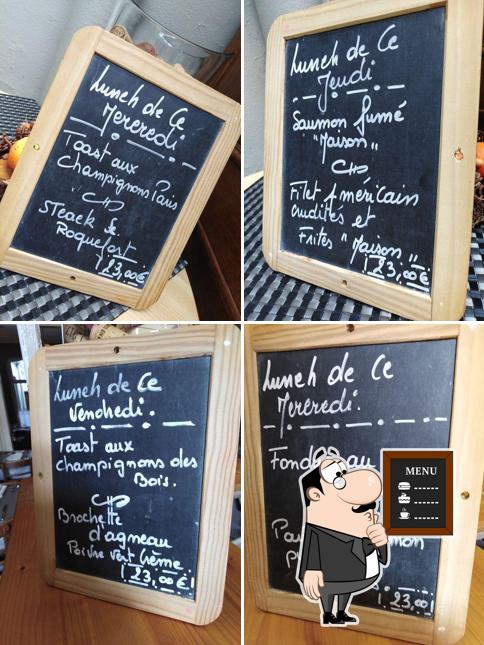 Lunch de Ce
Mercredi.
Toast aux
Champignons Paris
Steack Sc
Roquefort
123,00€
Lunch de Ce
Jeudi
Saumon fumé
"Maison"
Filet Américain
crudités et
Frites "Maison"
123,00€
Lunch de Ce
Vendhedi.
Toast aux
champignons des
Bois.
Brochette
d'agneau
Poivre vert Crème
123,00€!
Lunch de Ce
Mercredi.
au
MENU
23,00